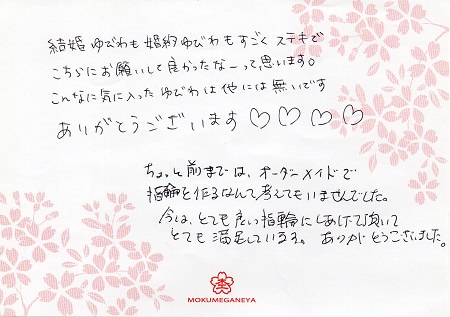 結婚ゆびわも婚約ゆびわもすごくステキで
こちらにお願いして良かったなーって思います。
こんなに気に入ったゆびわは他には無いです
ありがとうございます♡♡♡♡
ちょっと前までは、オーダーメイドで
指輪を作るなんて考えてもいませんでした。
今は、とても良い指輪にしあげて頂いて
とても満足しています。ありがとうございました。
MOKUMEGANEYA